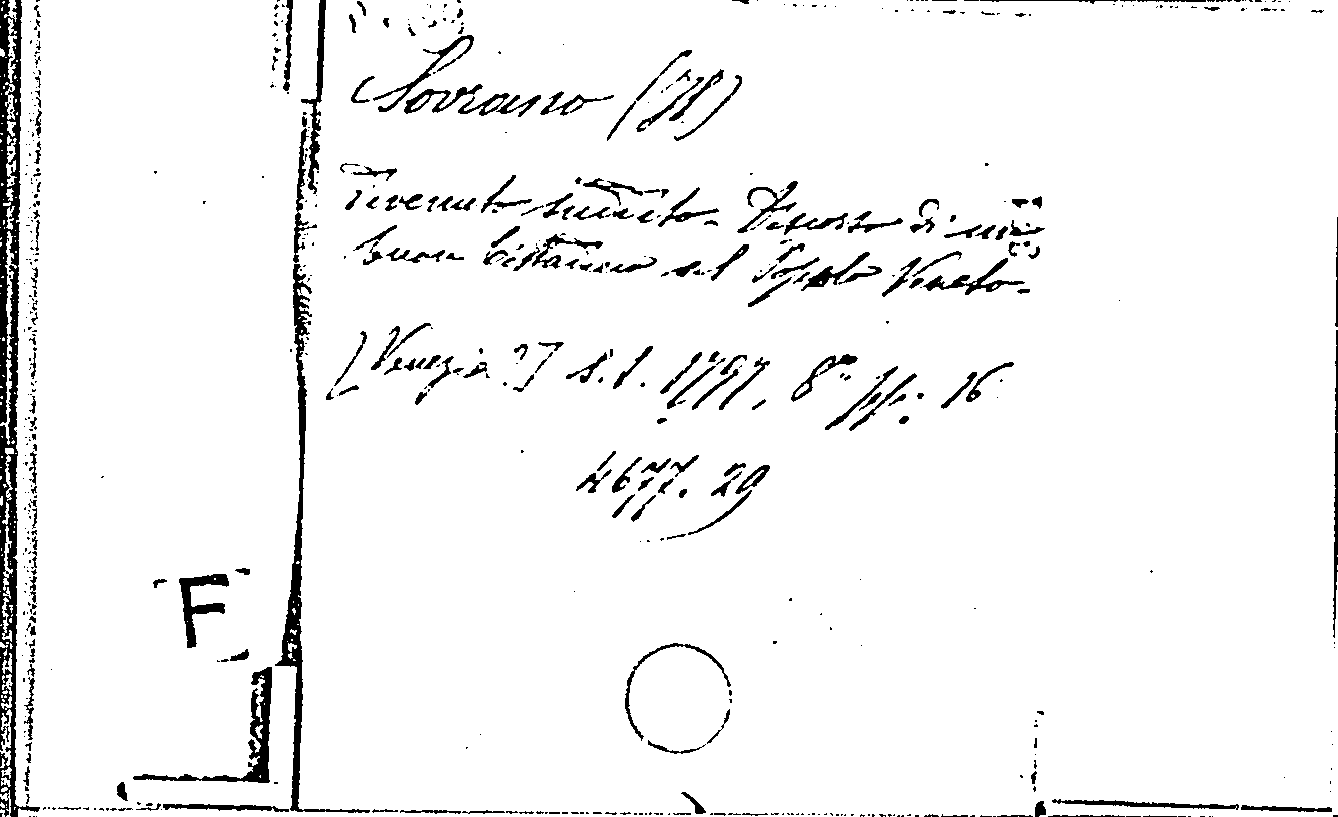 Sovrano (Il)
divenuto suddito. Discorso di un
buon Cittadino al Popolo Veneto.
[Venezia?] s. l. 1797, 8° pp. 16
4677. 29
F